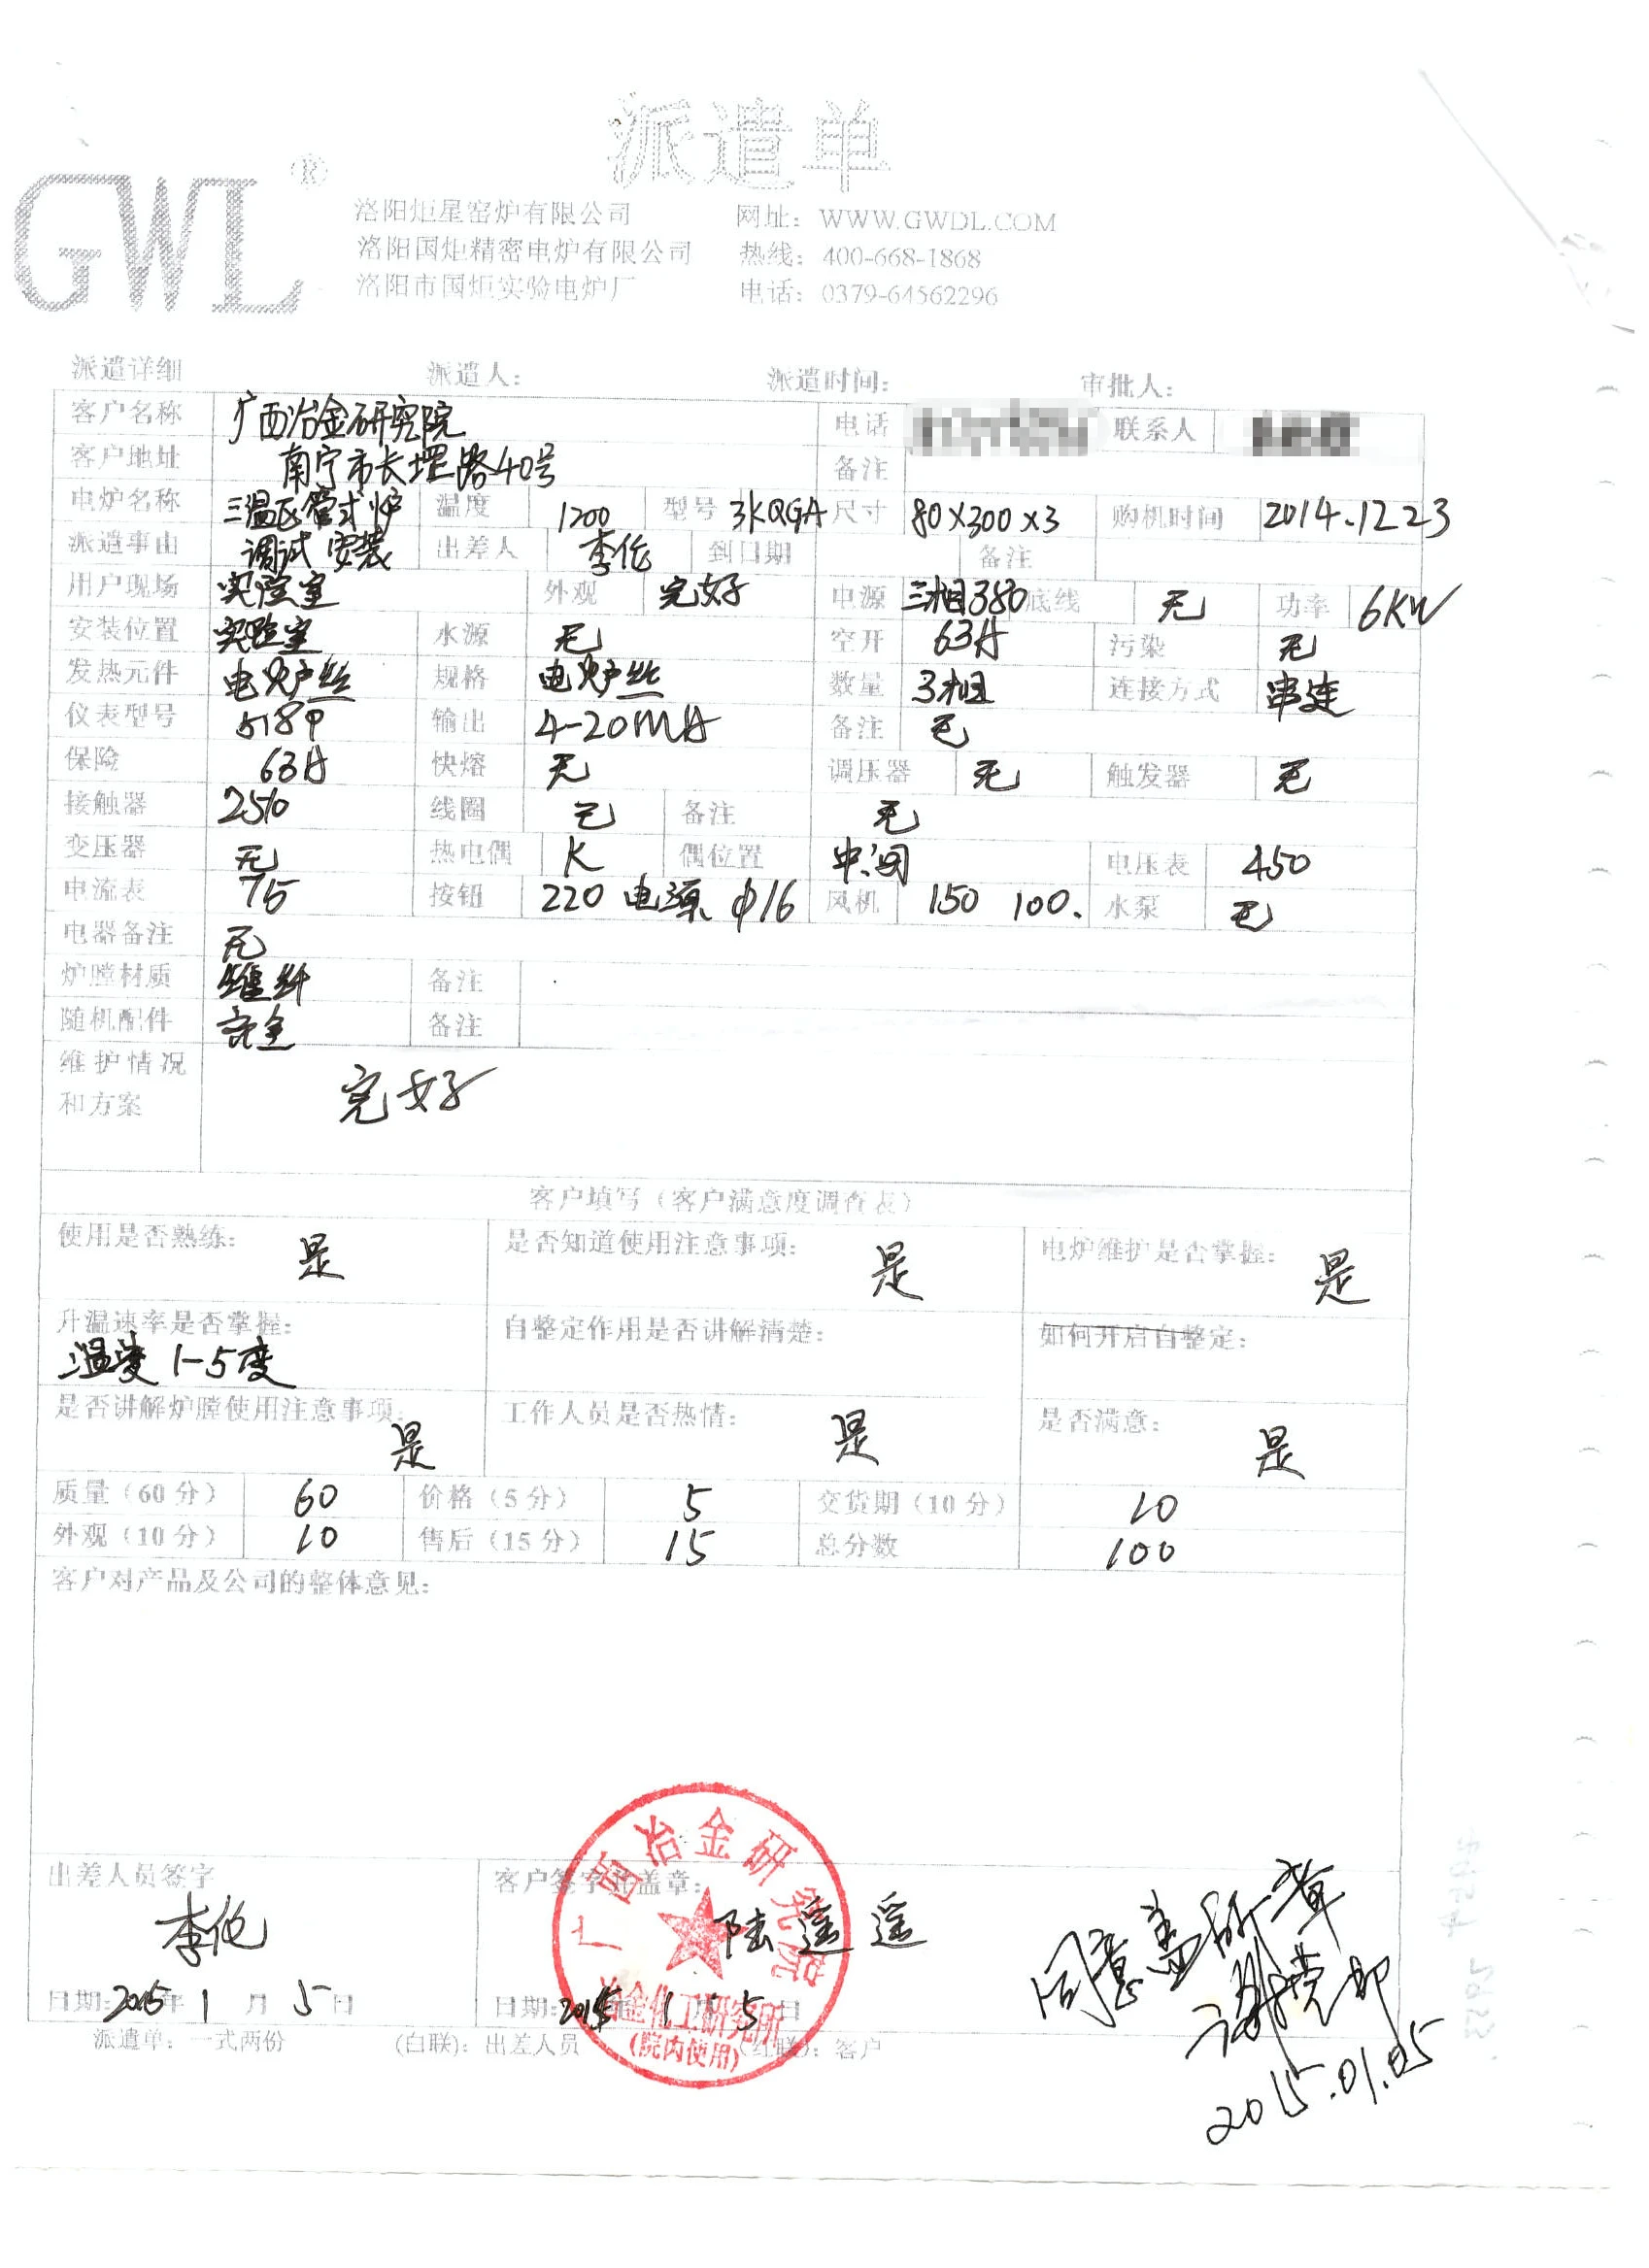 派遣单
GWL®
洛阳炬星窑炉有限公司 网址：WWW.GWDL.COM
洛阳国炬精密电炉有限公司 热线：400-668-1868
洛阳市国炬实验电炉厂 电话：0379-64562296
派遣详细 派遣人： 派遣时间： 审批人：
客户名称 广西冶金研究院 电话 联系人
客户地址 南宁市长堽路40号 备注
电炉名称 三温区管式炉 温度 1200 型号 3KQGA 尺寸 80×300×3 购机时间 2014.12 23
派遣事由 调试 安装 出差人 李 到日期 备注
用户现场 实验室 外观 完好 电源 三相380 底线 无 功率 6KW
安装位置 实验室 水源 无 空开 63A 污染 无
发热元件 电炉丝 规格 电炉丝 数量 3相 连接方式 串连
仪表型号 518P 输出 4-20MA 备注 无
保险 63A 快熔 无 调压器 无 触发器 无
接触器 2510 线圈 无 备注 无
变压器 无 热电偶 K 偶位置 中间 电压表 450
电流表 75 按钮 220 电源 φ16 风机 150 100. 水泵 无
电器备注 无
炉膛材质 纤 备注
随机配件 齐全 备注
维护情况 完好
和方案
客户填写（客户满意度调查表）
使用是否熟练： 是 是否知道使用注意事项： 是 电炉维护是否掌握： 是
升温速率是否掌握： 自整定作用是否讲解清楚： 如何开启自整定：
温度 1-5度
是否讲解炉膛使用注意事项： 是 工作人员是否热情： 是 是否满意： 是
质量（60分） 60 价格（5分） 5 交货期（10分） 10
外观（10分） 10 售后（15分） 15 总分数 100
客户对产品及公司的整体意见：
出差人员签字 客户签字并盖章：
李 陆遥遥
广西冶金研究院
冶金化工研究所
(院内使用)
同意盖所章
谢
2015.01.05
日期：2015年 1 月 5 日 日期：2015年 1 月 5 日
派遣单：一式两份 (白联)：出差人员 (红联)：客户